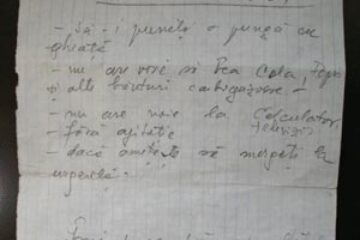 - să-i puneți o pungă cu
gheață
- nu are voie să bea Cola,
și alte băuturi carbogazoase -
- nu are voie la calculator
televizor
- fără agitație
- dacă amețește să mergeți la
urgență.